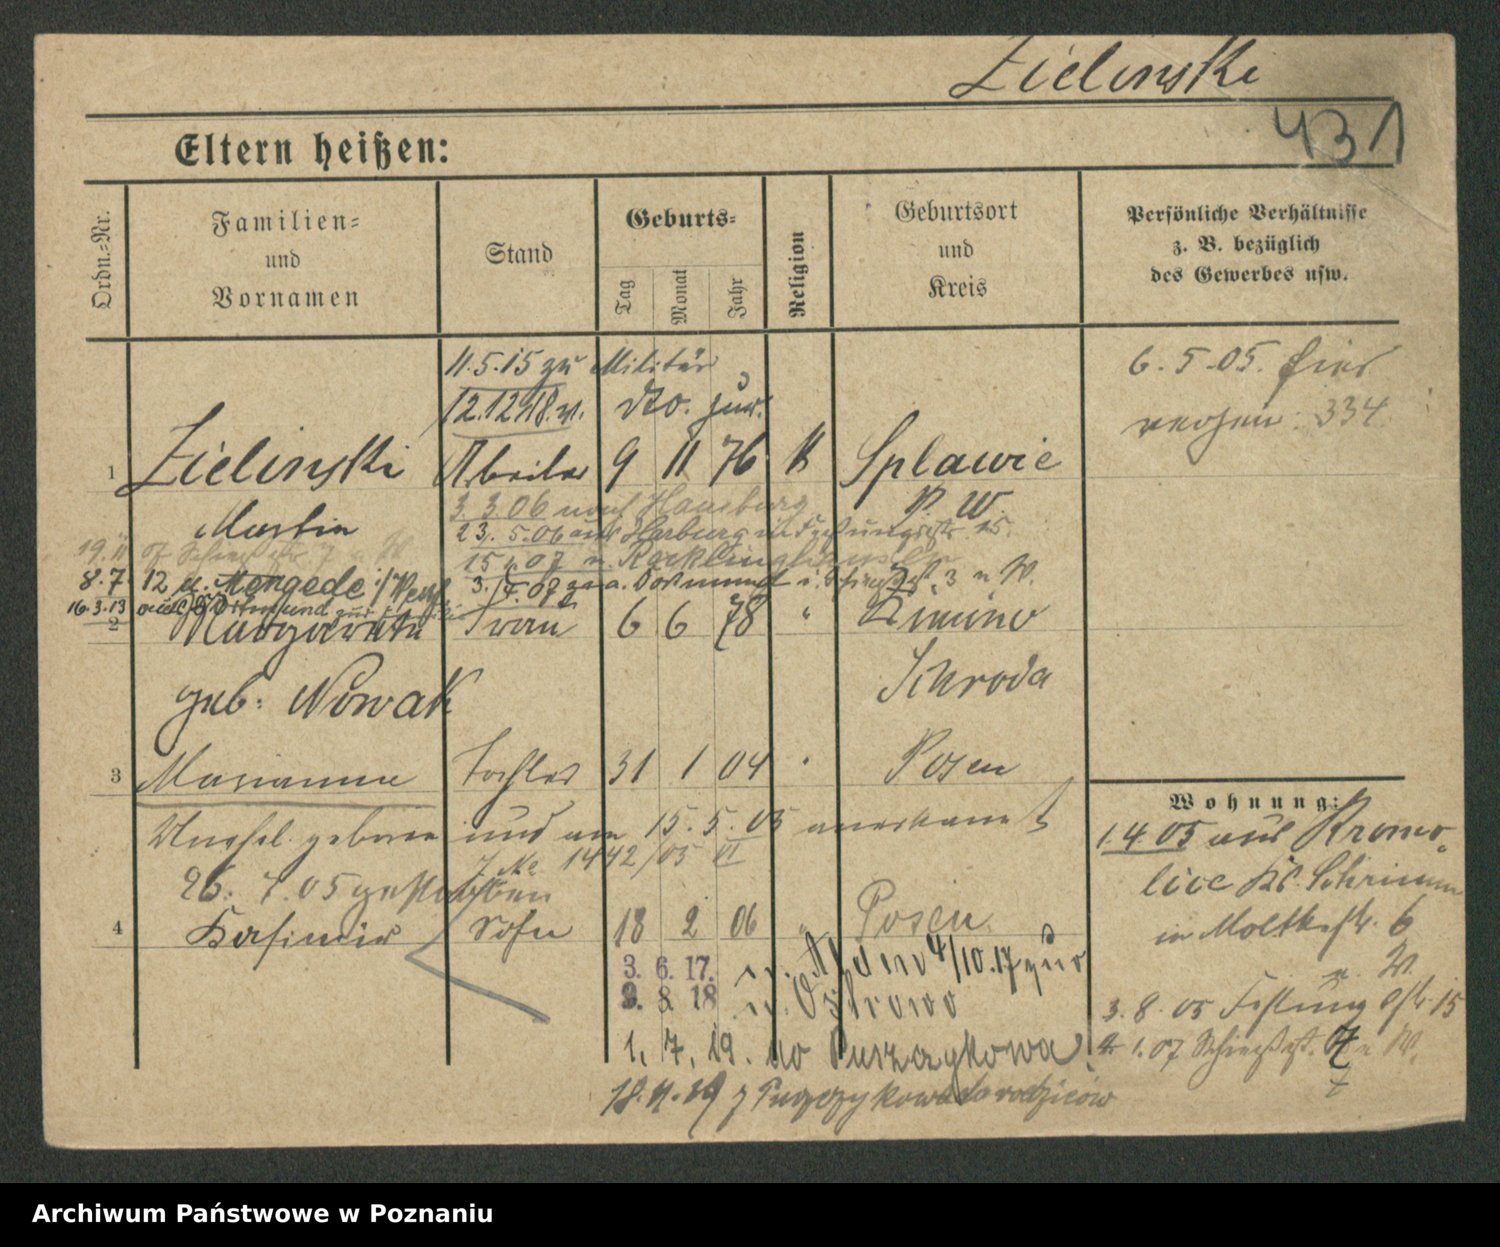 Zielinski
431
Eltern heißen:
Ordn.=Nr.
Familien=
und
Vornamen
Stand
Geburts=
Tag
Monat
Jahr
Religion
Geburtsort
und
Kreis
Persönliche Verhältnisse
z. B. bezüglich
des Gewerbes usw.
11.5.15 zu Militär
12.12.18. v. dto. zur.
6.5.05.
334
1 Zielinski Arbeiter 9 11 76 K Splawie
P. W
Martin
3.3.06 nach Hamburg
23. 5.06 aus Harburg
15 07 n. Recklinghausen
19.11 07
8.7.12 n. Mengede i/Westf.
3. 09 Dortmund
16.3.13 aus Dortmund zur
2 Margaretha Frau 6 6 78 " Zimino
Schroda
geb. Nowak
3 Marianna Tochter 31 1 04 " Posen
Unehel. geboren und am 15.5.05 anerkannt
J. No 1442/05 VI
26. 7.05 gestorben
4 Kasimir Sohn 18 2 06 " Posen
3. 6. 17.
4/10.17 zur
9. 8. 18 n. Ostrowo
1. 7. 19. do Puszczykowa
18.11.19 z Puszczykowa do rodziców
Wohnung:
1.4.05 aus Kromo=
lice Kr. Schrimm
in Moltkestr. 6
n. W.
3. 8. 05 Festung str. 15
1.07 Schießstr. 7 n W.
7
Archiwum Państwowe w Poznaniu